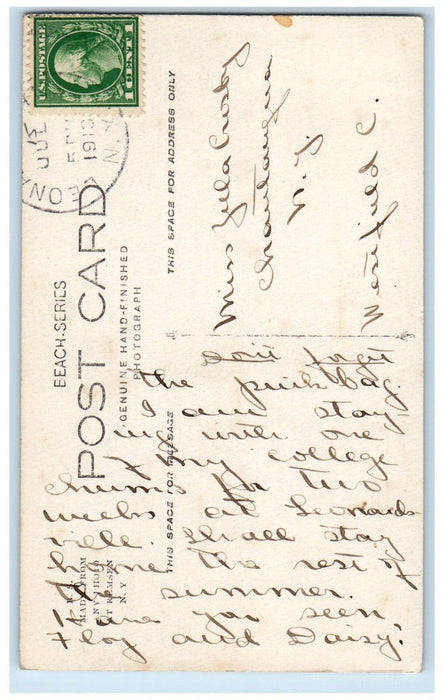 U.S. POSTAGE
1 CENT 1
JUL
5 PM
1913
N.Y.
BEACH-SERIES
POST CARD
GENUINE HAND-FINISHED
PHOTOGRAPH
THIS SPACE FOR ADDRESS ONLY
THIS SPACE FOR MESSAGE
MADE FROM
ANY PHOTO
AT REMSEN
N.Y.
Miss Zella Crosby
Chautauqua
N.Y.
Westfield C.
Don't forget
the pink bag.
I am stay-
ing with one
of my college
chums for two
weeks at Leonards-
ville. Shall stay
home the rest of
the summer.
Have you seen
Floy and Daisy?